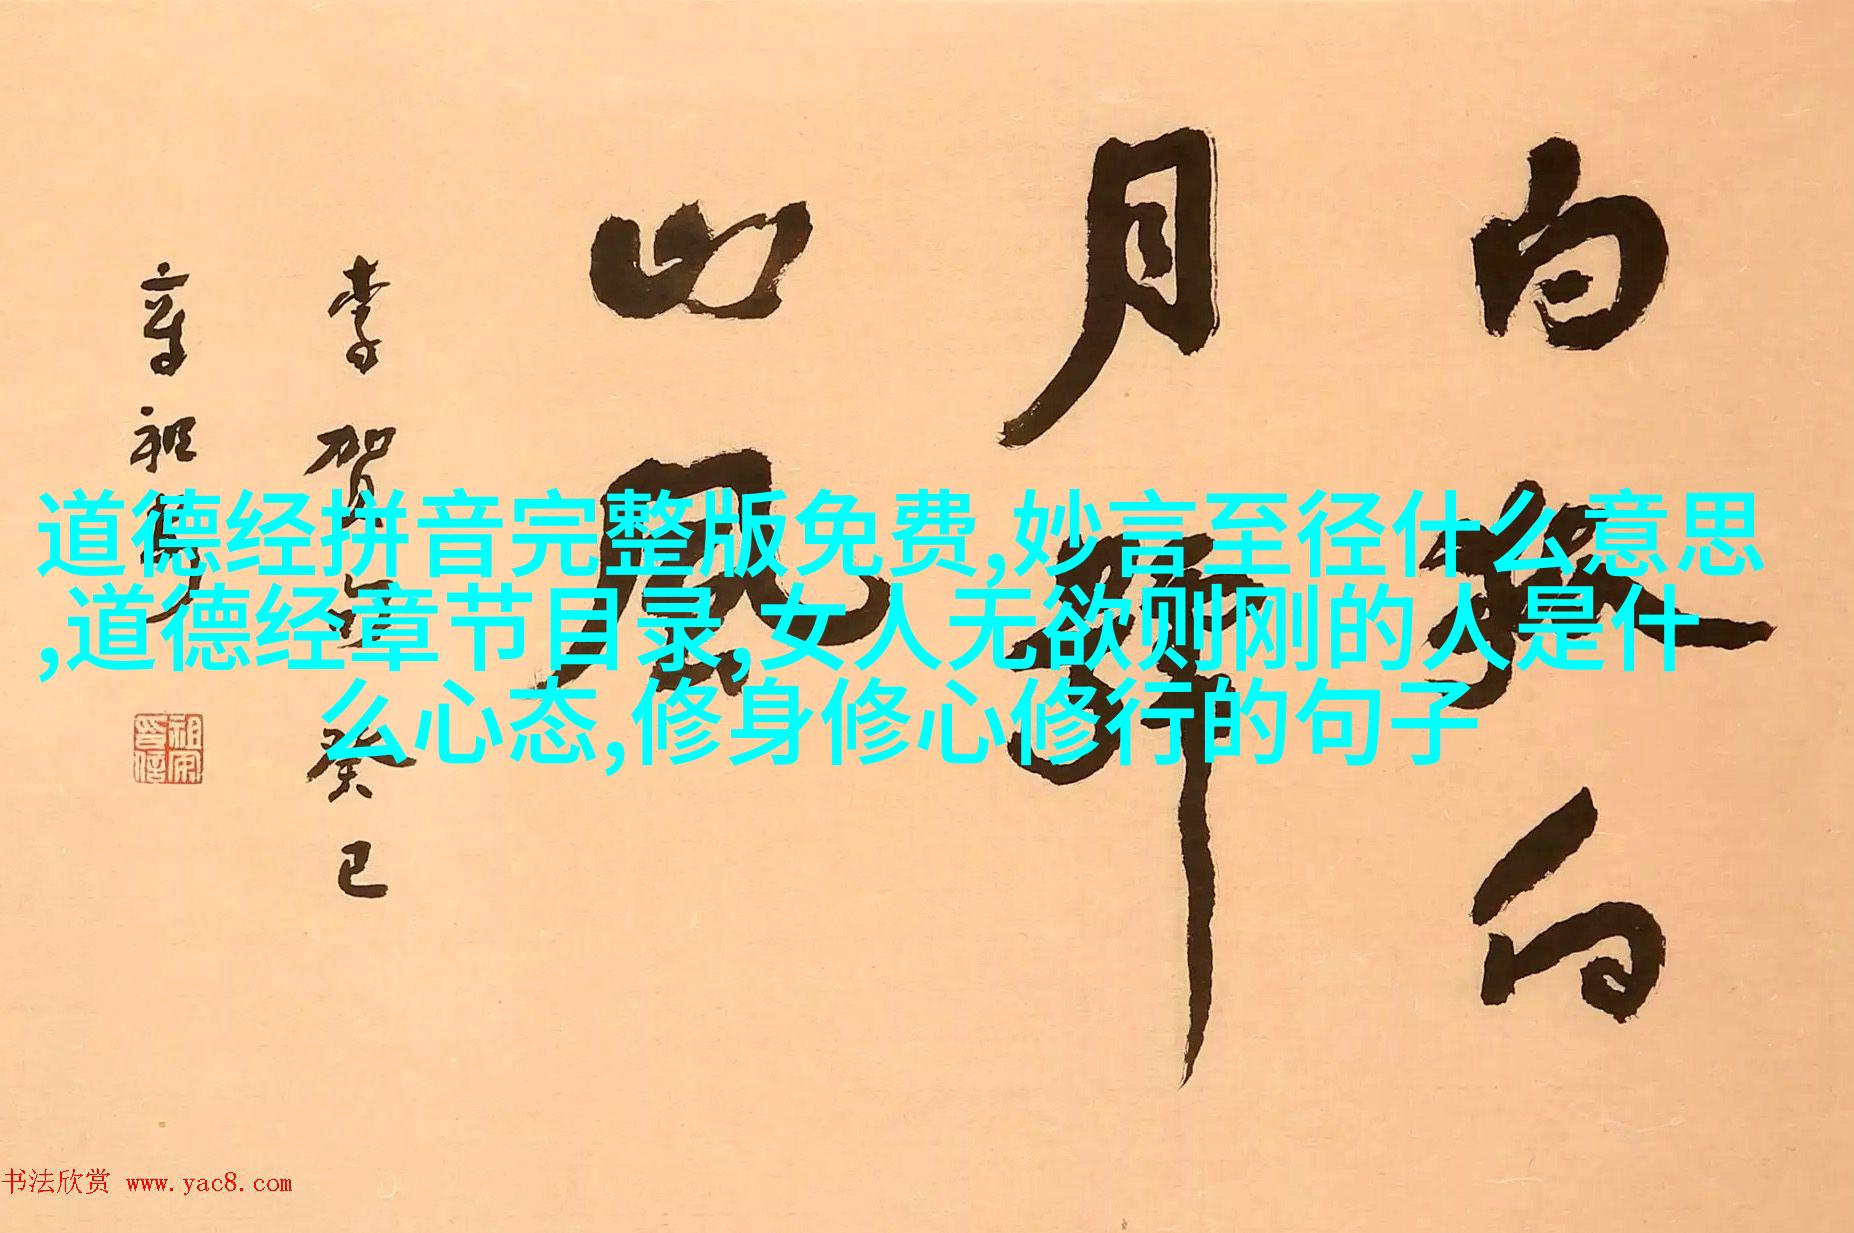 道德经拼音完整版免费,妙言至径什么意思
,道德经章节目录,女人无欲则刚的人是什
么心态,修身修心修行的句子
白 白
月
山風
李賀句癸巳
章祖安
书法欣赏 www.yac8.com